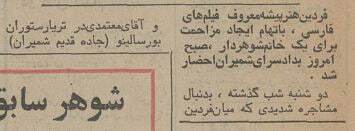 فردین هنرپیشه معروف فیلمهای
فارسی ، باتهام ایجاد مزاحمت
برای یک خانم شوهردار ،صبح
امروز بدادسرای شمیران احضار
شد .
دو شنبه شب گذشته ، بدنبال
مشاجره شدیدی که میان فردین
و آقای معتمدی در تریا رستوران
بورسالینو (جاده قدیم شمیران)
شوهر سابق